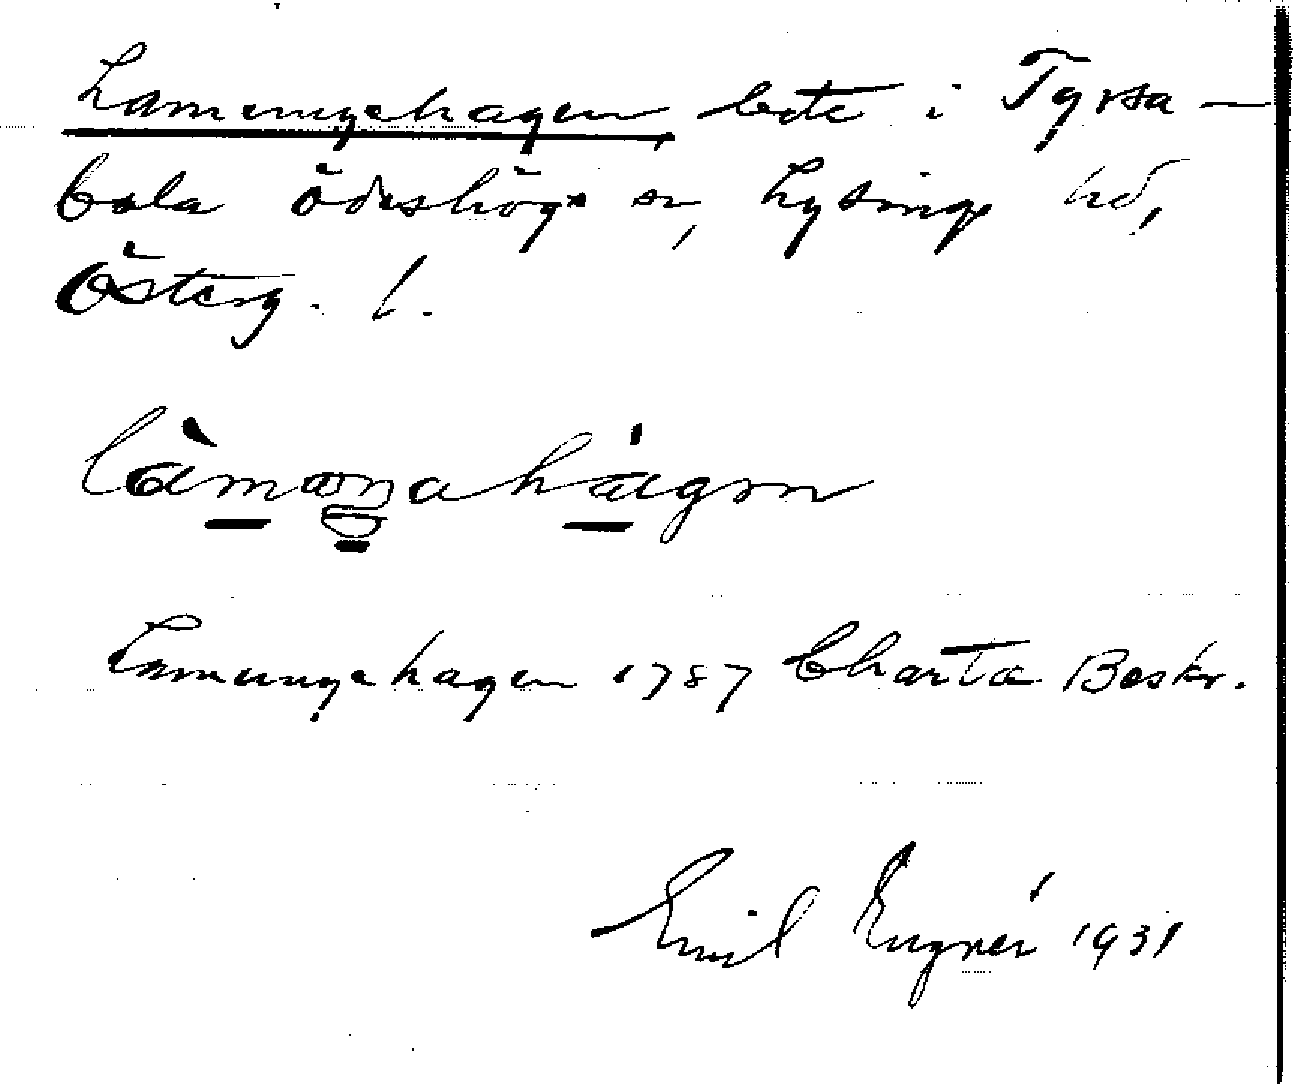 Lamungehagen, bete i Tyrsa-
bola Ödeshögs sn, Lysings hd,
Österg. l.
làmoŋahágən
Lamungehagen 1787 Charta Beskr.
Emil Engnér 1931